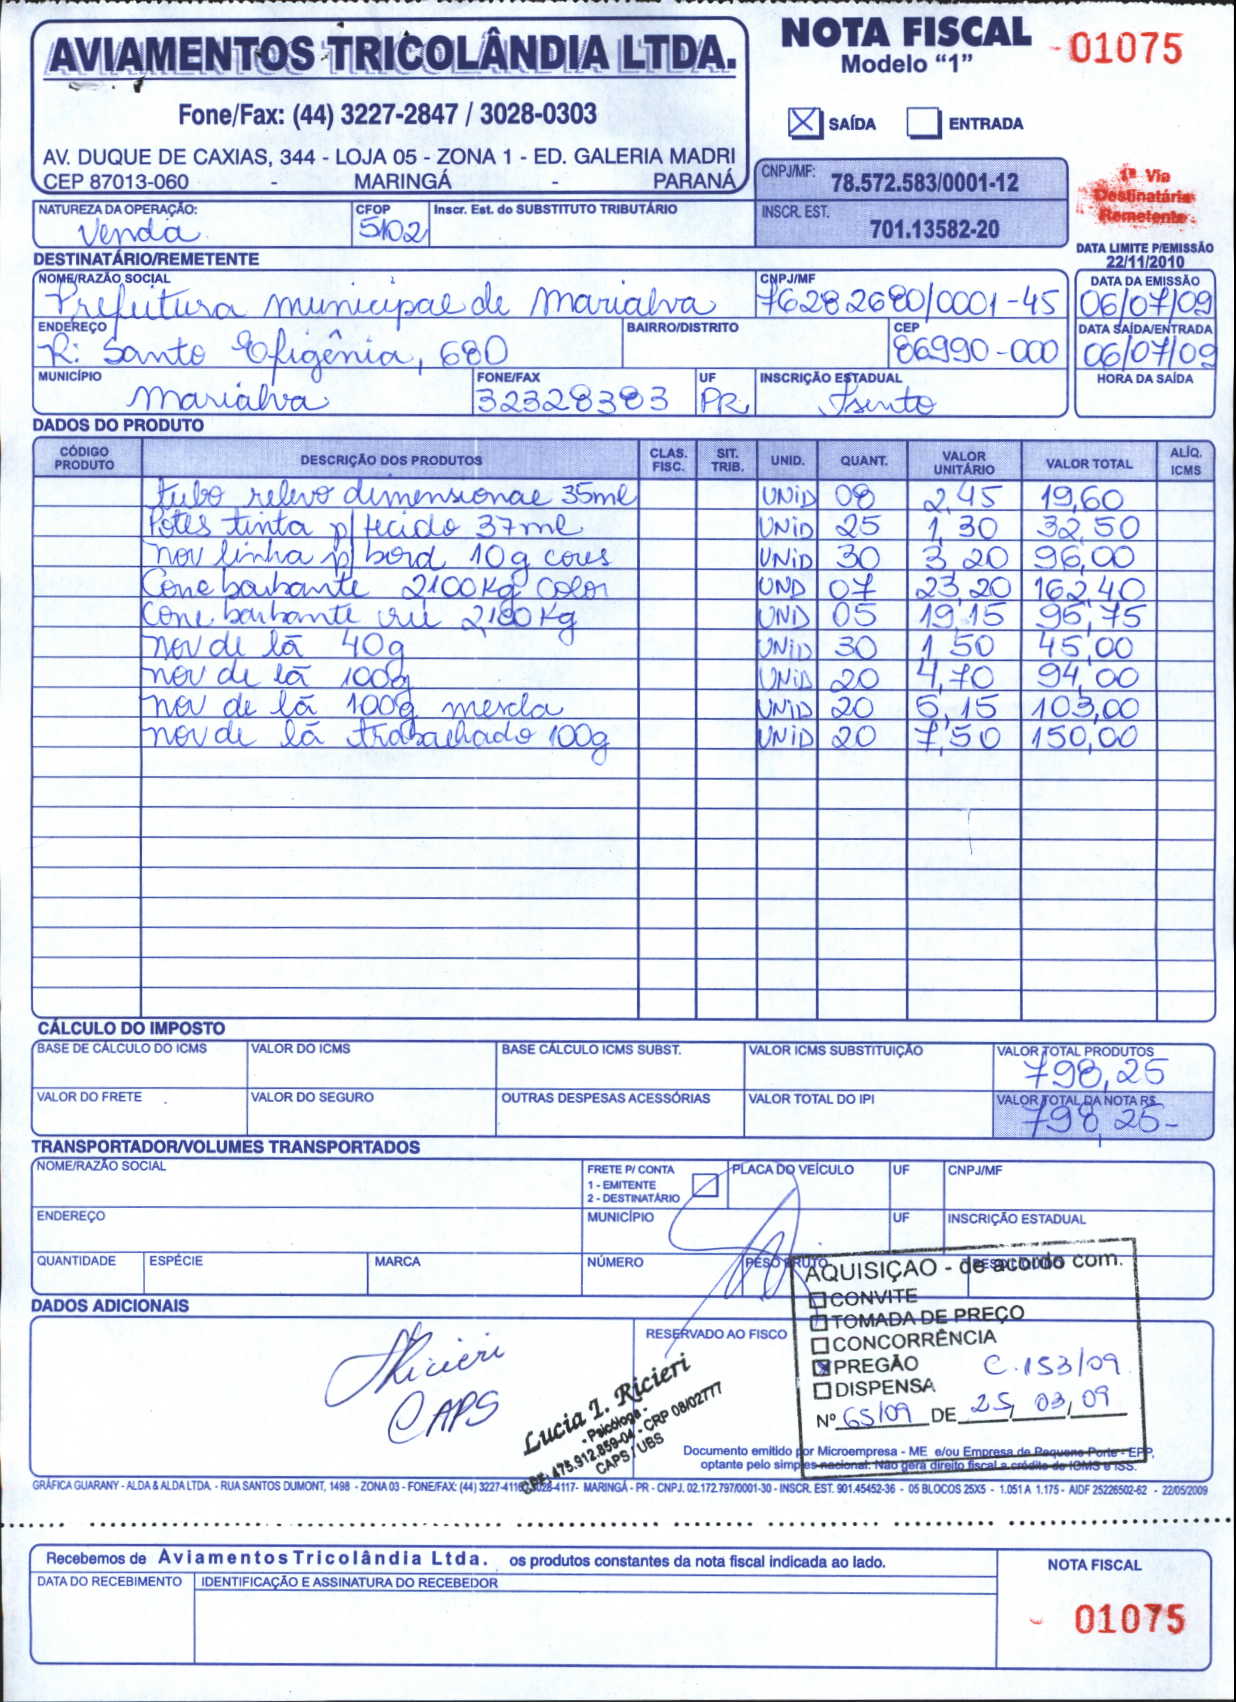 AVIAMENTOS TRICOLÂNDIA LTDA.
Fone/Fax: (44) 3227-2847 / 3028-0303
AV. DUQUE DE CAXIAS, 344 - LOJA 05 - ZONA 1 - ED. GALERIA MADRI
CEP 87013-060 - MARINGÁ - PARANÁ
NOTA FISCAL - 01075
Modelo "1"
X SAÍDA ENTRADA
CNPJ/MF: 78.572.583/0001-12
INSCR. EST. 701.13582-20
1ª Via
Destinatário
Remetente
NATUREZA DA OPERAÇÃO: CFOP Inscr. Est. do SUBSTITUTO TRIBUTÁRIO
Venda 5102
DATA LIMITE P/EMISSÃO
22/11/2010
DESTINATÁRIO/REMETENTE
NOME/RAZÃO SOCIAL CNPJ/MF DATA DA EMISSÃO
Prefeitura municipal de Marialva 76282680/0001-45 06/07/09
ENDEREÇO BAIRRO/DISTRITO CEP DATA SAÍDA/ENTRADA
R: Santo Efigênia, 680 86990-000 06/07/09
MUNICÍPIO FONE/FAX UF INSCRIÇÃO ESTADUAL HORA DA SAÍDA
Marialva 32328383 PR Isento
DADOS DO PRODUTO
CÓDIGO PRODUTO DESCRIÇÃO DOS PRODUTOS CLAS. FISC. SIT. TRIB. UNID. QUANT. VALOR UNITÁRIO VALOR TOTAL ALÍQ. ICMS
tubo relevo dimensional 35ml UNID 08 2,45 19,60
Potes tinta p/ tecido 37ml UNID 25 1,30 32,50
nov linha p/ bord 10g cores UNID 30 3,20 96,00
Cone barbante 2100Kg color UND 07 23,20 162,40
Cone barbante cru 2,100 Kg UND 05 19,15 95,75
nov de lã 40g UNID 30 1,50 45,00
nov de lã 100g UNID 20 4,70 94,00
nov de lã 100g mescla UNID 20 5,15 103,00
nov de lã trabalhado 100g UNID 20 7,50 150,00
CÁLCULO DO IMPOSTO
BASE DE CÁLCULO DO ICMS VALOR DO ICMS BASE CÁLCULO ICMS SUBST. VALOR ICMS SUBSTITUIÇÃO VALOR TOTAL PRODUTOS
798,25
VALOR DO FRETE VALOR DO SEGURO OUTRAS DESPESAS ACESSÓRIAS VALOR TOTAL DO IPI VALOR TOTAL DA NOTA R$
798,25-
TRANSPORTADOR/VOLUMES TRANSPORTADOS
NOME/RAZÃO SOCIAL FRETE P/ CONTA PLACA DO VEÍCULO UF CNPJ/MF
1 - EMITENTE
2 - DESTINATÁRIO
ENDEREÇO MUNICÍPIO UF INSCRIÇÃO ESTADUAL
QUANTIDADE ESPÉCIE MARCA NÚMERO PESO BRUTO
AQUISIÇÃO - de acordo com.
CONVITE
TOMADA DE PREÇO
CONCORRÊNCIA
X PREGÃO C. 153/09
DISPENSA
Nº 65/09 DE 25, 03, 09
DADOS ADICIONAIS
RESERVADO AO FISCO
Ricieri
CAPS
Lucia I. Ricieri
- Psicóloga -
CPF: 475.912.859-04 - CRP 08/02777
CAPS / UBS
Documento emitido por Microempresa - ME e/ou Empresa de Pequeno Porte - EPP,
optante pelo simples nacional. Não gera direito fiscal a crédito de ICMS e ISS.
GRÁFICA GUARANY - ALDA & ALDA LTDA. - RUA SANTOS DUMONT, 1498 - ZONA 03 - FONE/FAX: (44) 3227-4116/3028-4117- MARINGÁ - PR - CNPJ. 02.172.797/0001-30 - INSCR. EST. 901.45452-36 - 05 BLOCOS 25X5 - 1.051 A 1.175 - AIDF 25226502-62 - 22/05/2009
Recebemos de Aviamentos Tricolândia Ltda. os produtos constantes da nota fiscal indicada ao lado.
NOTA FISCAL
DATA DO RECEBIMENTO IDENTIFICAÇÃO E ASSINATURA DO RECEBEDOR
- 01075